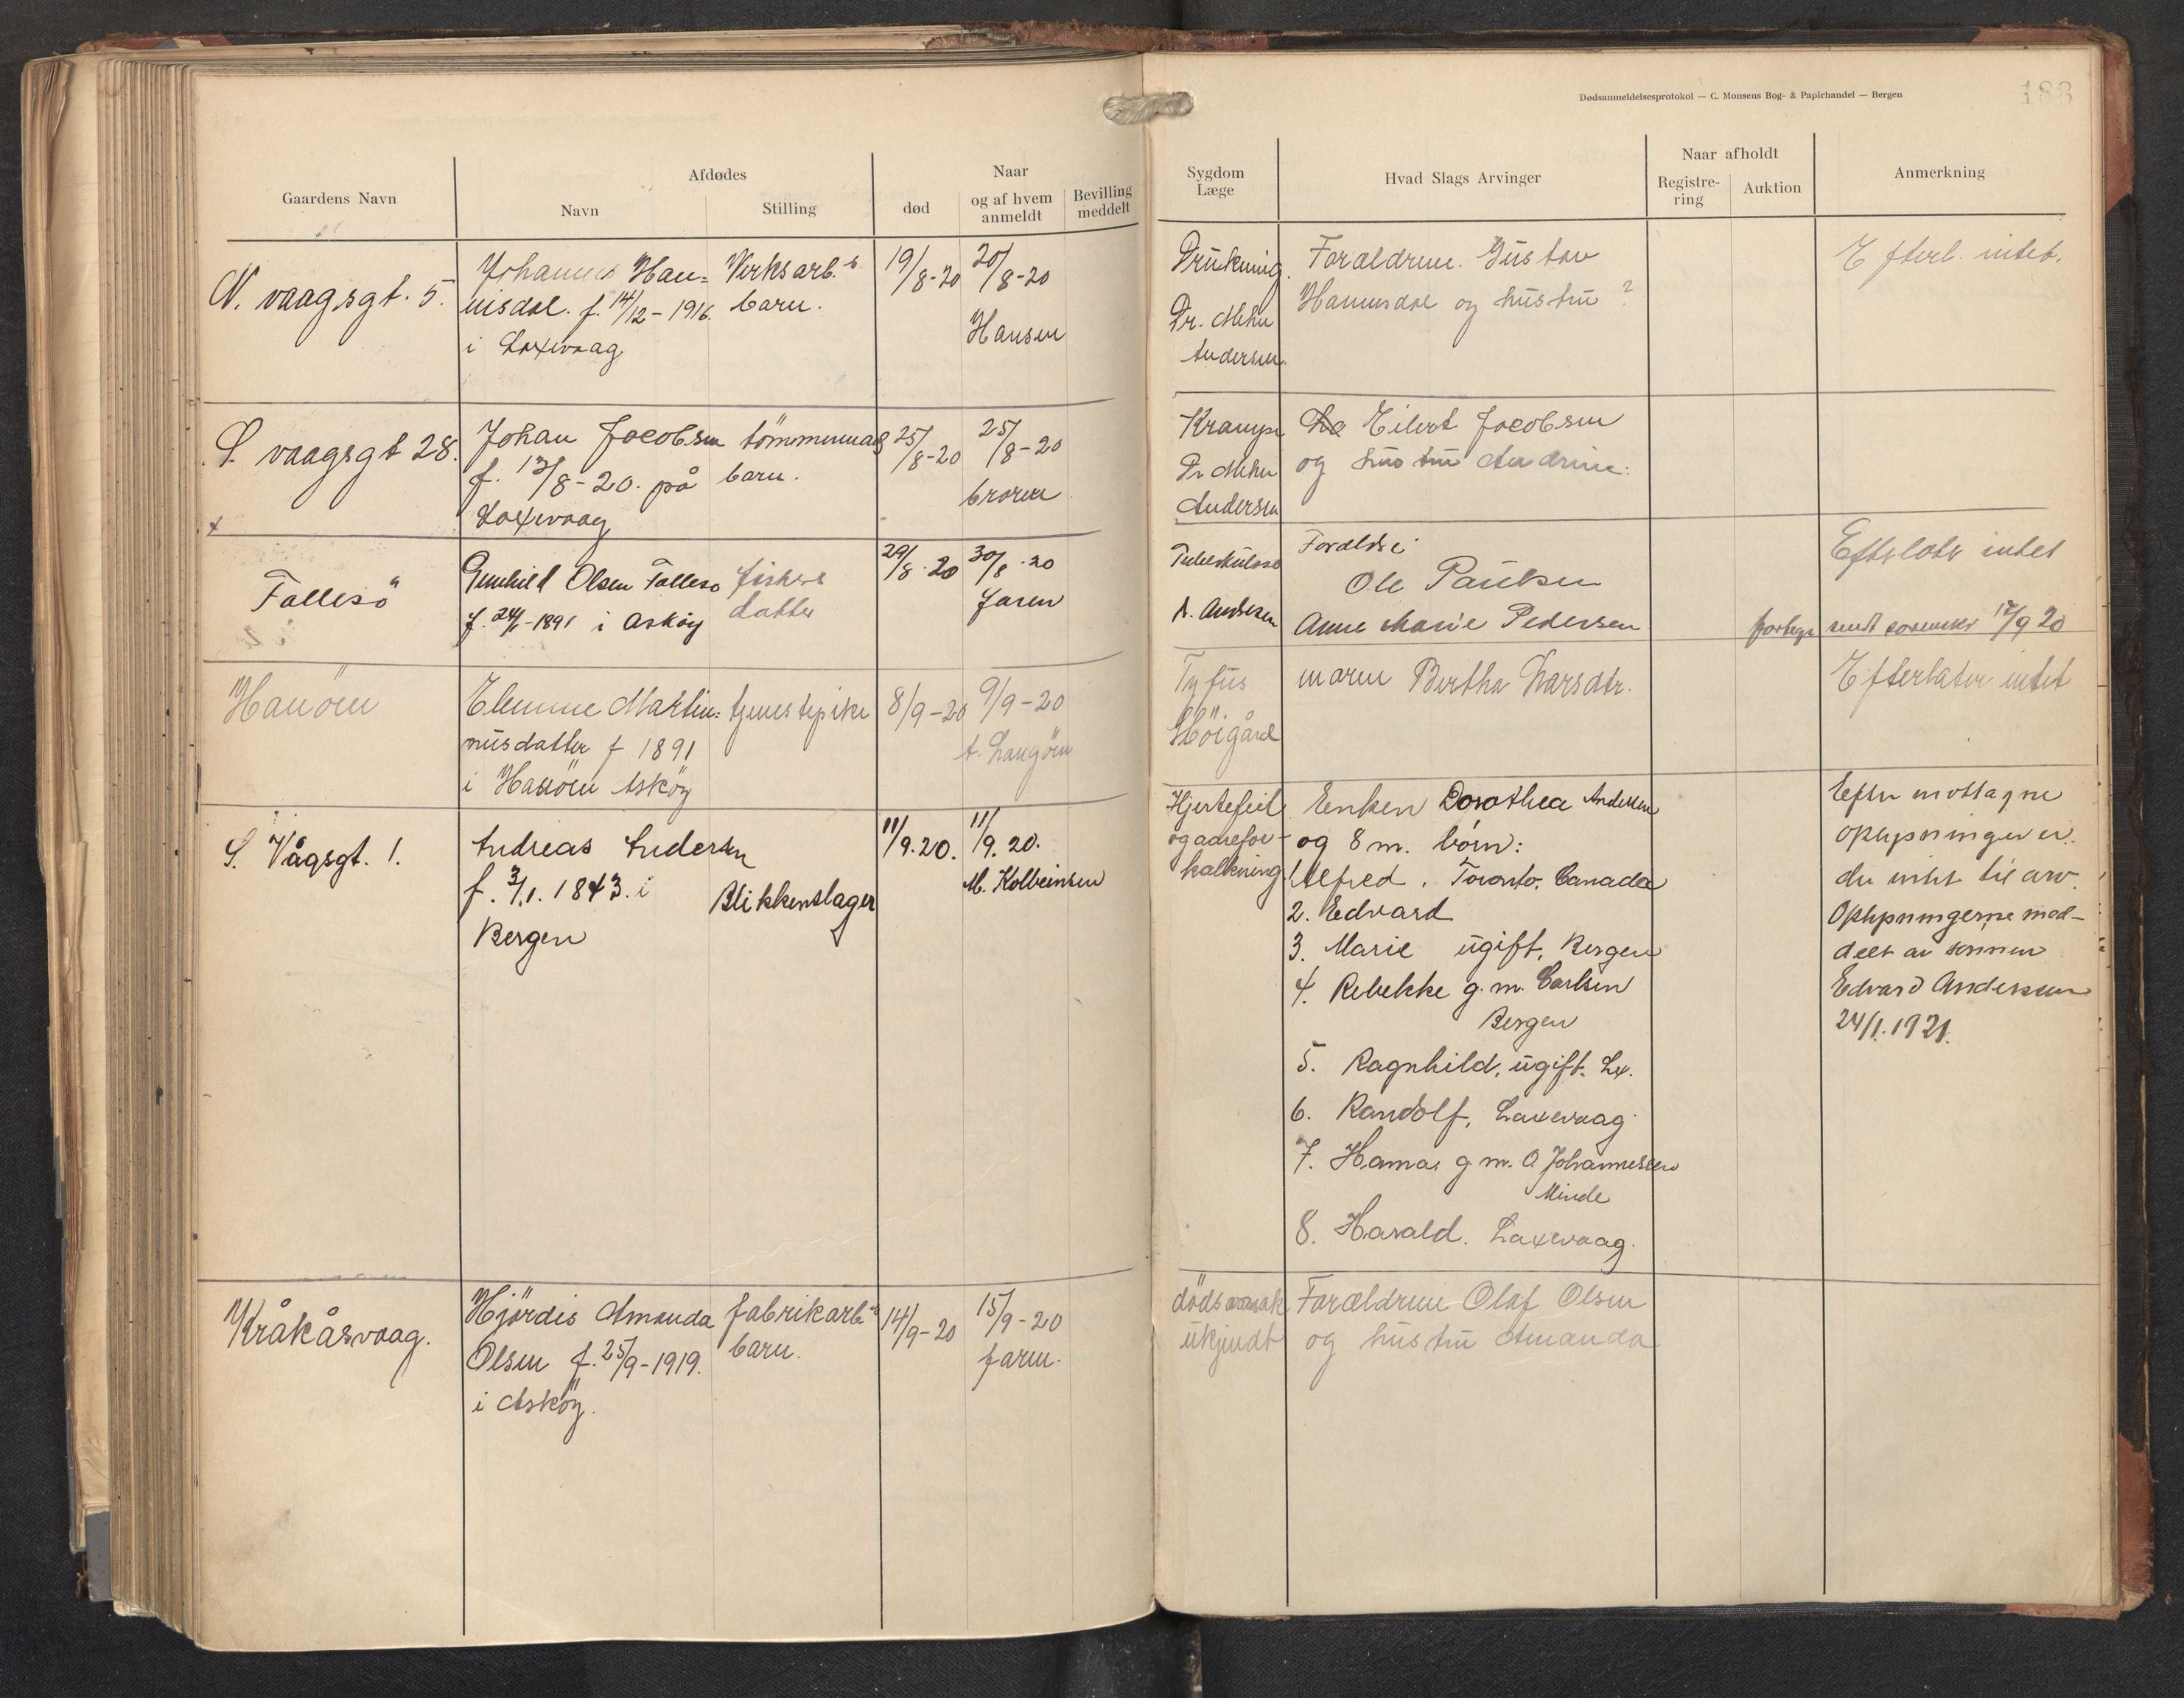 Dødsanmeldelsesprotokol — C. Monsens Bog- & Papirhandel — Bergen
183
Gaardens Navn
Afdødes
Navn
Stilling
Naar
død
og af hvem
anmeldt
Bevilling
meddelt
Sygdom
Læge
Hvad Slags Arvinger
Naar afholdt
Registre-
ring
Auktion
Anmerkning
N. vaagsgt. 5.
Johannes Han=
nisdal. f. 14/12 - 1916.
i Laxevaag
Verksarb.s
barn.
19/8-20
20/8-20
Hansen
Drukning.
Dr.
Andersen.
Forældrene. Gustav
Hannisdal og hustru ?
Efterl. intet.
S. vaagsgt 28.
Johan Jacobsen
f. 13/8-20. på
Laxevaag
tömmermands
barn.
25/8-20
25/8-20
broren
Krampe
Dr
Andersen
Eilert Jacobsen
og hustru Andrine.
x
Follesö
Gunhild Olsen Follesø
f. 24/1-1891 i Askøy
fiskers
datter
29/8.20
30/8.20
faren
Tuberkulose
A. Andersen
Forældre:
Ole Paulsen
Anne Marie Pedersen
Efterlater intet
17/9 20
Hanöen
Martin=
nusdatter f 1891
i Hanöen Asköy
tjenestepike
8/9-20
9/9-20
Tyfus
Höigård
moren Bertha Larsdtr.
Efterlater intet
S. Vågsgt. 1.
Andreas Andersen
f. 3/1. 1843. i
Bergen
Blikkenslager
11/9.20.
11/9.20.
M. Kolbeinsen
Hjertefeil
og aarefor-
kalkning
Enken Dorothea Andersen
og 8 m. börn:
1. Alfred. Toronto. Canada
2. Edvard
3. Marie ugift, Bergen
4. Rebekke g. m. Carlsen
Bergen
5. Ragnhild, ugift. Lx.
6. Randolf, Laxevaag
7. g. m. O. Johannessen
Minde
8. Harald. Laxevaag.
Efter mottagne
oplysninger er
der intet til arv.
Oplysningerne med-
delt av sønnen
Edvard Andersen
24/1.1921.
Kråkåsvaag.
Hjördis Amanda
Olsen f. 25/9-1919.
i Asköy.
fabrikarb.s
barn.
14/9-20
15/9-20
faren.
dödsaarsak
ukjendt
Forældrene Olaf Olsen
og hustru Amanda